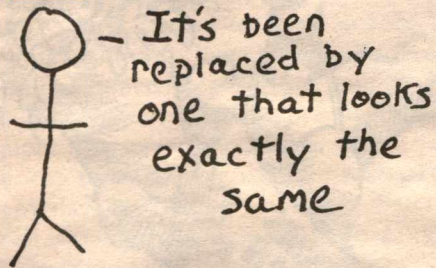 It's been
replaced by
one that looks
exactly the
same